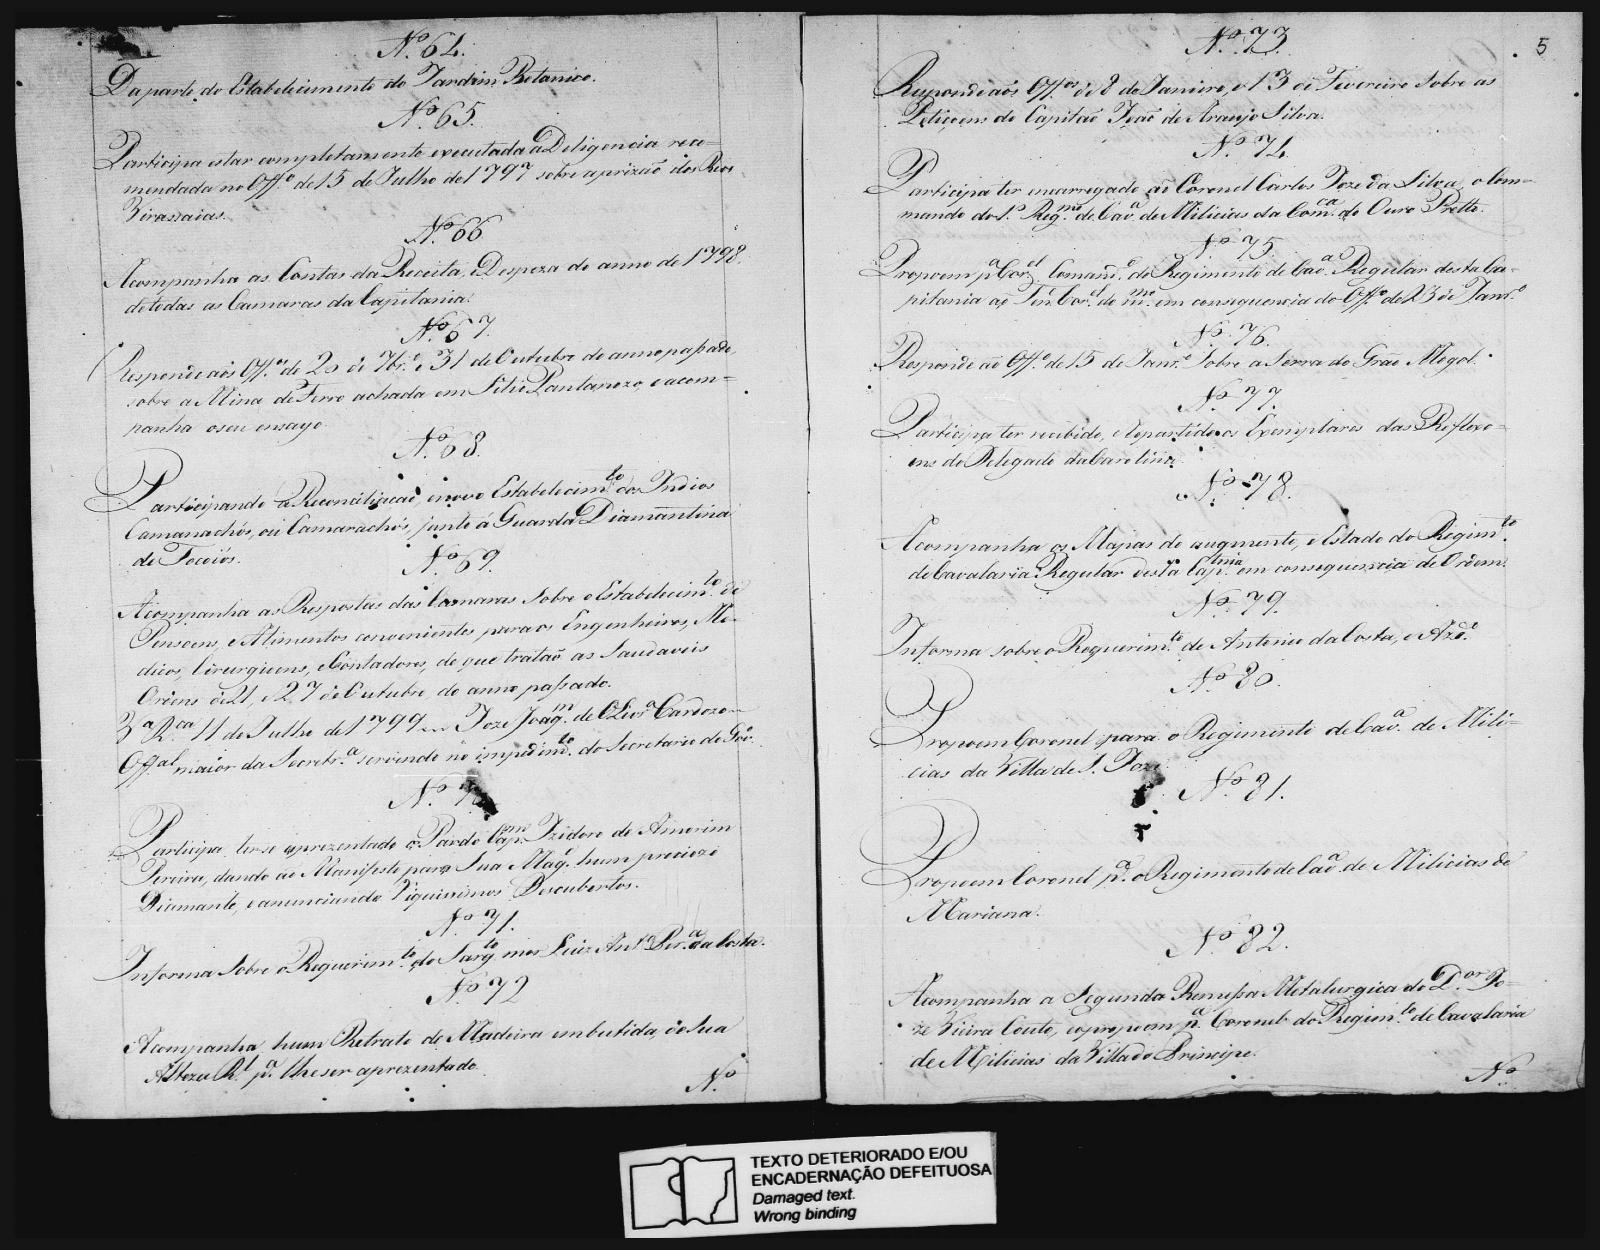 Nº 64.
Da parte do Estabelecimento do Jardim Botanico.
Nº 65.
Participa estar completamente executada a Deligencia reco=
mendada no Off.º de 15 de Julho de 1797 sobre a prizaõ dos Reos
Virassaias.
Nº 66
Acompanha as Contas da Receita, e Despeza do anno de 1798.
de todas as Camaras da Capitania.
Nº 67.
Responde aós Off.ºˢ de 20 de 7br.º e 31 de Outubro do anno passado,
sobre a Mina de Ferro achada em Sitio Pantanozo, e acom=
panha o seu ensayo.
Nº 68.
Participando a Reconciliaçaõ, e novo Estabelecimᵗᵒ dos Indios
Camanachós, oú Camarachós, junto á Guarda Diamantina
de Tocoiós.
Nº 69.
Acompanha as Respostas das Camaras sobre o Estabelecimᵗᵒ de
Pensoens, e Alimentos convenientes para os Engenheiros, Me=
dicos, Cirurgiens, e Contadores, de que trataõ as Saudaveis
Ordens de 21, e 27 de Outubro do anno passado.
Vª Rᶜᵃ 11 de Julho de 1799 = Joze Joaqᵐ de Olivʳᵃ Cardozo =
Offᵃˡ maior da Secretrᵃ servindo no impedimᵗᵒ do Secretario do Govº.
Nº 70
Participa terse aprezentado o Pardo Capᵐ Izidoro de Amorim
Pereira, dando ao Manifesto para Sua Magᵉ hum preciozo
Diamante, e anunciando Riquissimos Descubertos.
Nº 71.
Informa Sobre o Requerimᵗᵒ do Sargᵗᵒ mor Luiz Antº Perᵃ da Costa.
Nº 72
Acompanha hum Retrato de Madeira embutida, de Sua
Alteza Rˡ pᵃ lhe ser aprezentado.
Nº
5
Nº 73
Responde aós Offºˢ de 8 de Janeiro, e 13 de Fevereiro sobre as
Petiçoens do Capitaõ Joaõ de Araujo Silva.
Nº 74
Participa ter encarregado áo Coronel Carlos Joze da Silva, o Com=
mando do 1º Regᵐᵒ de Cavᵃ de Milicias da Comᶜᵃ do Ouro Pretto.
Nº 75.
Propoem pᵃ Corᵉˡ Comandᵉ do Regimento de Cavᵃ Regular desta Ca=
pitania aó Tenᵉ Corᵉˡ do mᵐᵒ em consequencia do Offº de 23 de Janrº
Nº 76.
Responde aó Offº de 15 de Janrº Sobre a Serra do Graõ Mogol.
Nº 77.
Participa ter recebido, e Repartido os Exemplares das Reflexo=
ens do Delegado da Carolina.
Nº 78.
Acompanha os Mapas do augmento, e Estado do Regimᵗᵒ
de Cavalaria Regular desta Capᵗⁿⁱᵃ em consequencia de Ordem.
Nº 79.
Informa sobre o Requerimᵗᵒ de Antonio da Costa, e Azdº.
Nº 80.
Propoem Coronel para o Regimento de Cavᵃ de Mili=
cias da Villa de S. Joze.
Nº 81.
Propoem Coronel pᵃ o Regimento de Cavᵃ de Milicias de
Mariana.
Nº 82.
Acompanha a Segunda Remessa Metalurgica do Dᵒʳ Jo=
ze Vieira Couto, e o propoem pᵃ Coronel do Regimᵗᵒ de Cavalaria
de Milicias da Villa do Principe.
Nº
TEXTO DETERIORADO E/OU
ENCADERNAÇÃO DEFEITUOSA
Damaged text.
Wrong binding